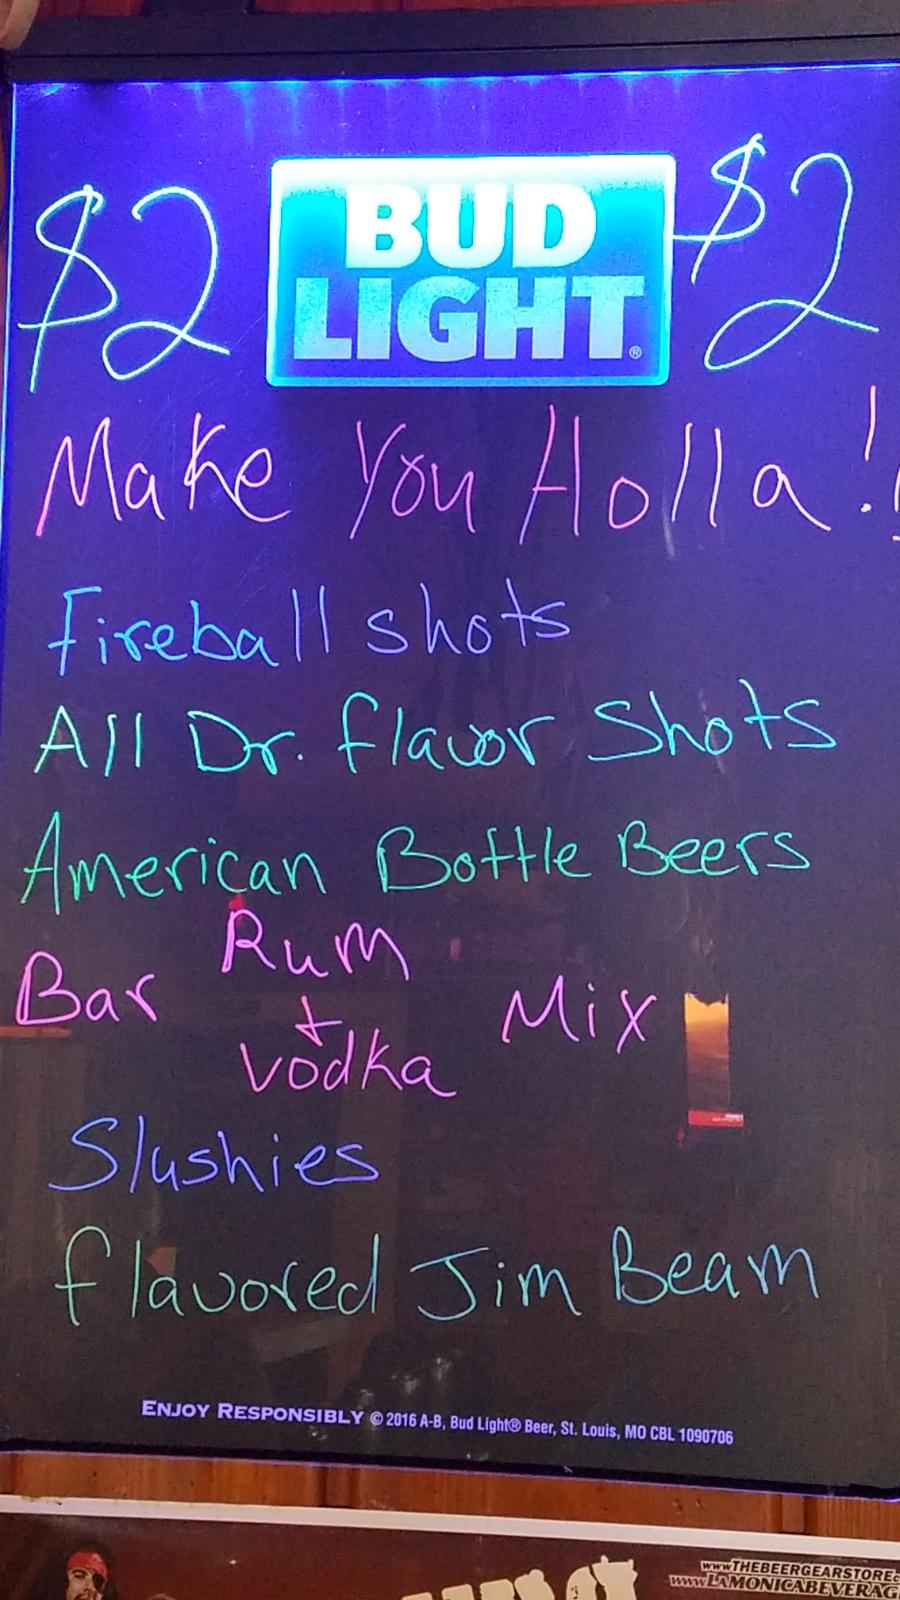 $2 BUD LIGHT® $2
Make You Holla!!
Fireball shots
All Dr. flavor Shots
American Bottle Beers
Bar Rum + Vodka Mix
Slushies
flavored Jim Beam
ENJOY RESPONSIBLY © 2016 A-B, Bud Light® Beer, St. Louis, MO CBL 1090706
www.THEBEERGEARSTORE.c
www.LAMONICABEVERAG